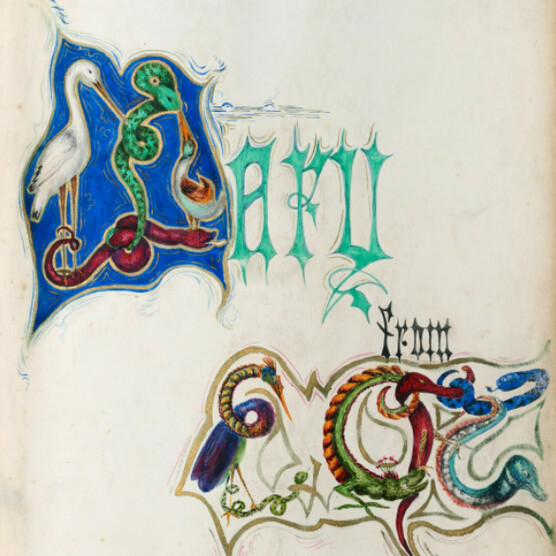 Mary
from